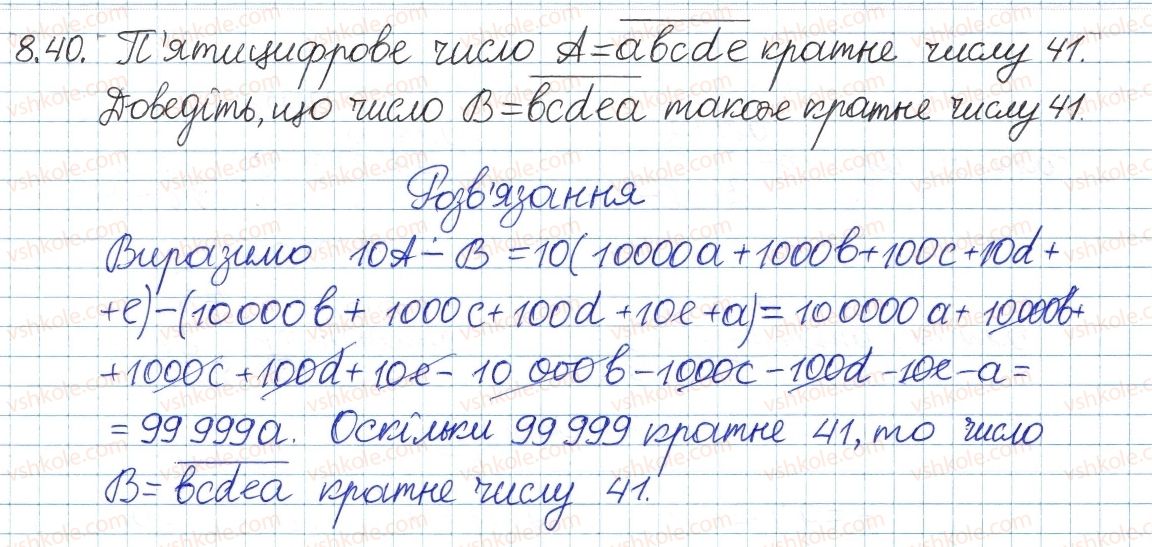 8.40. П'ятицифрове число A=a̅b̅c̅d̅e̅ кратне числу 41.
Доведіть, що число B=b̅c̅d̅e̅a̅ також кратне числу 41.
Розв'язання
Виразимо 10A - B = 10(10000a+1000b+100c+10d+
+e)-(10000b+1000c+100d+10e+a)=100000a+10000b+
+1000c+100d+10e-10000b-1000c-100d-10e-a=
=99999a. Оскільки 99999 кратне 41, то число
B=b̅c̅d̅e̅a̅ кратне числу 41.